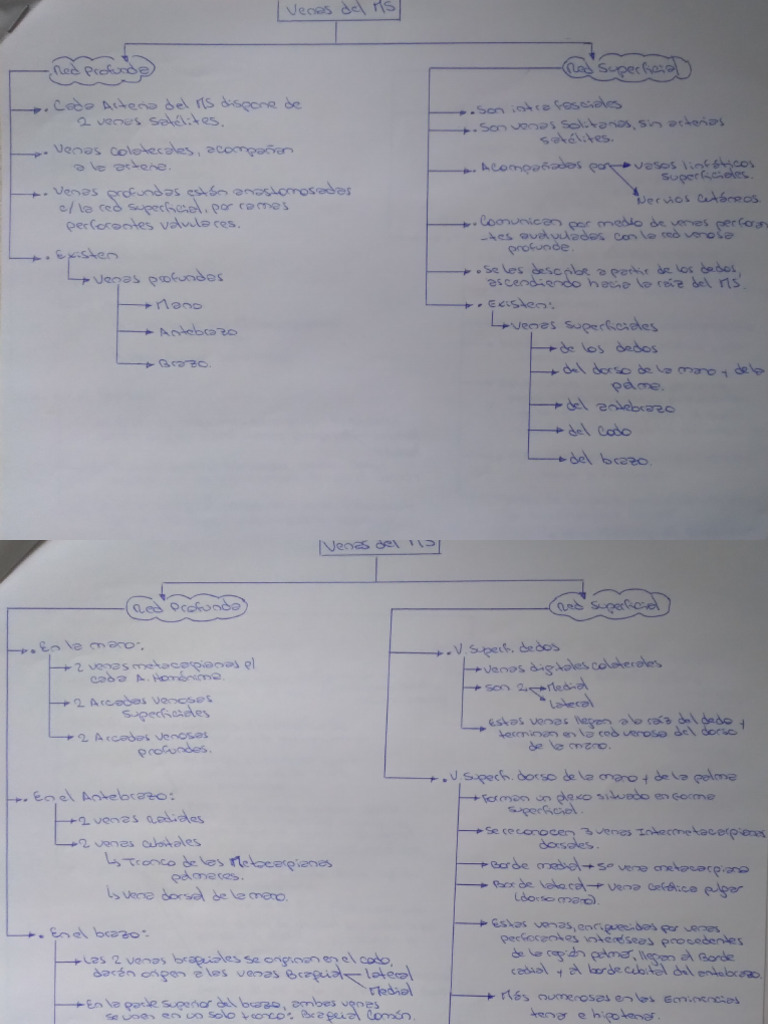 Venas del MS
Red Profunda
• Cada Arteria del MS dispone de
2 venas satélites.
• Venas colaterales, acompañan
a la arteria.
• Venas profundas están anastomosadas
c/ la red superficial, por ramas
perforantes valvulares.
• Existen
Venas profundas
Mano
Antebrazo
Brazo.
Red Superficial
• Son intrafasciales
• Son venas solitarias, sin arterias
satélites.
• Acompañadas por vasos linfáticos
superficiales.
Nervios cutáneos
• Comunican por medio de venas perforan
-tes avalvuladas con la red venosa
profunda.
• Se les describe a partir de los dedos,
ascendiendo hacia la raíz del MS.
• Existen:
Venas superficiales
de los dedos
del dorso de la mano y de la
palma.
del antebrazo
del codo
del brazo.
Venas del MS
Red Profunda
• En la mano:
2 venas metacarpianas p/
cada A. Homónima.
2 Arcadas venosas
superficiales
2 Arcadas venosas
profundas.
• En el Antebrazo:
2 venas radiales
2 venas cubitales
↳ Tronco de las Metacarpianas
palmares.
↳ Vena dorsal de la mano.
• En el brazo:
Las 2 venas braquiales se originan en el codo,
darán origen a las venas Braquial Lateral
Medial
En la parte superior del brazo, ambas venas
se unen en un solo tronco: Braquial Común.
Red Superficial
• V. Superf. dedos
Venas digitales colaterales
Son 2 Medial
Lateral
Estas venas llegan a la raíz del dedo y
terminan en la red venosa del dorso
de la mano.
• V Superf. dorso de la mano y de la palma
Forman un plexo situado en forma
superficial.
Se reconocen 3 venas Intermetacarpianas
dorsales.
Borde medial → 5ª vena metacarpiana
Borde lateral → vena cefálica pulgar
(dorso mano).
Estas venas, enriquecidas por venas
perforantes interóseas procedentes
de la región palmar, llegan al Borde
radial y al borde cubital del antebrazo.
Más numerosas en las Eminencias
tenar e hipotenar.